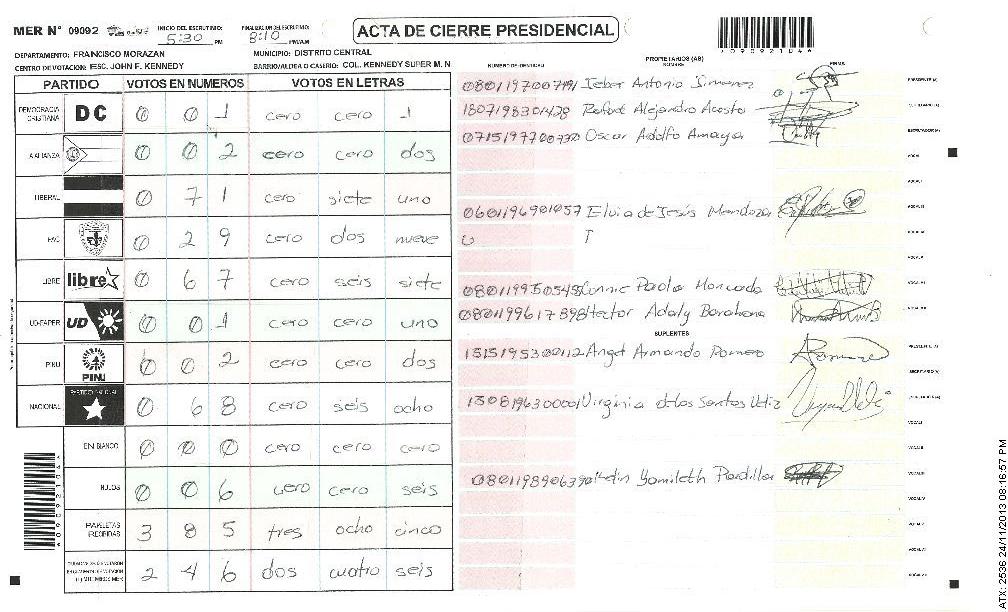 MER N° 09092 INICIO DEL ESCRUTINIO: 5:30 PM FINALIZACION DEL ESCRUTINIO: 8:10 PM/AM ACTA DE CIERRE PRESIDENCIAL
DEPARTAMENTO: FRANCISCO MORAZAN MUNICIPIO: DISTRITO CENTRAL
CENTRO DE VOTACION: ESC. JOHN F. KENNEDY BARRIO/ALDEA O CASERIO: COL. KENNEDY SUPER M. N
PARTIDO VOTOS EN NUMEROS VOTOS EN LETRAS
DEMOCRACIA CRISTIANA DC 0 0 1 cero cero 1
ALIANZA 0 0 2 cero cero dos
LIBERAL 0 7 1 cero siete uno
PAC 0 2 9 cero dos nueve
LIBRE libre 0 6 7 cero seis siete
UD-FAPER UD 0 0 1 cero cero uno
PINU PINU 0 0 2 cero cero dos
NACIONAL PARTIDO NACIONAL 0 6 8 cero seis ocho
EN BLANCO 0 0 0 cero cero cero
NULOS 0 0 6 cero cero seis
PAPELETAS RECIBIDAS 3 8 5 tres ocho cinco
2 4 6 dos cuatro seis
NUMERO DE IDENTIDAD PROPRIETARIOS (AS) NOMBRE FIRMA
Antonio Jimenez PRESIDENTE (A)
1807198301428 Rafael Alejandro Acosta SECRETARIO (A)
Oscar Adolfo Amaya ESCRUTADOR (A)
VOCAL I
0601196901057 Elvia de Jesús Mendoza
Connie Paola Moncada
Hector Adaly Barahona
SUPLENTES
1515195300112 Angel Armando Romero PRESIDENTE (A)
SECRETARIO (A)
1508196300001 Virginia delos Santos
VOCAL I
VOCAL II
Yamileth Padilla
VOCAL IV
VOCAL V
ATX: 2536 24/11/2013 08:16:57 PM